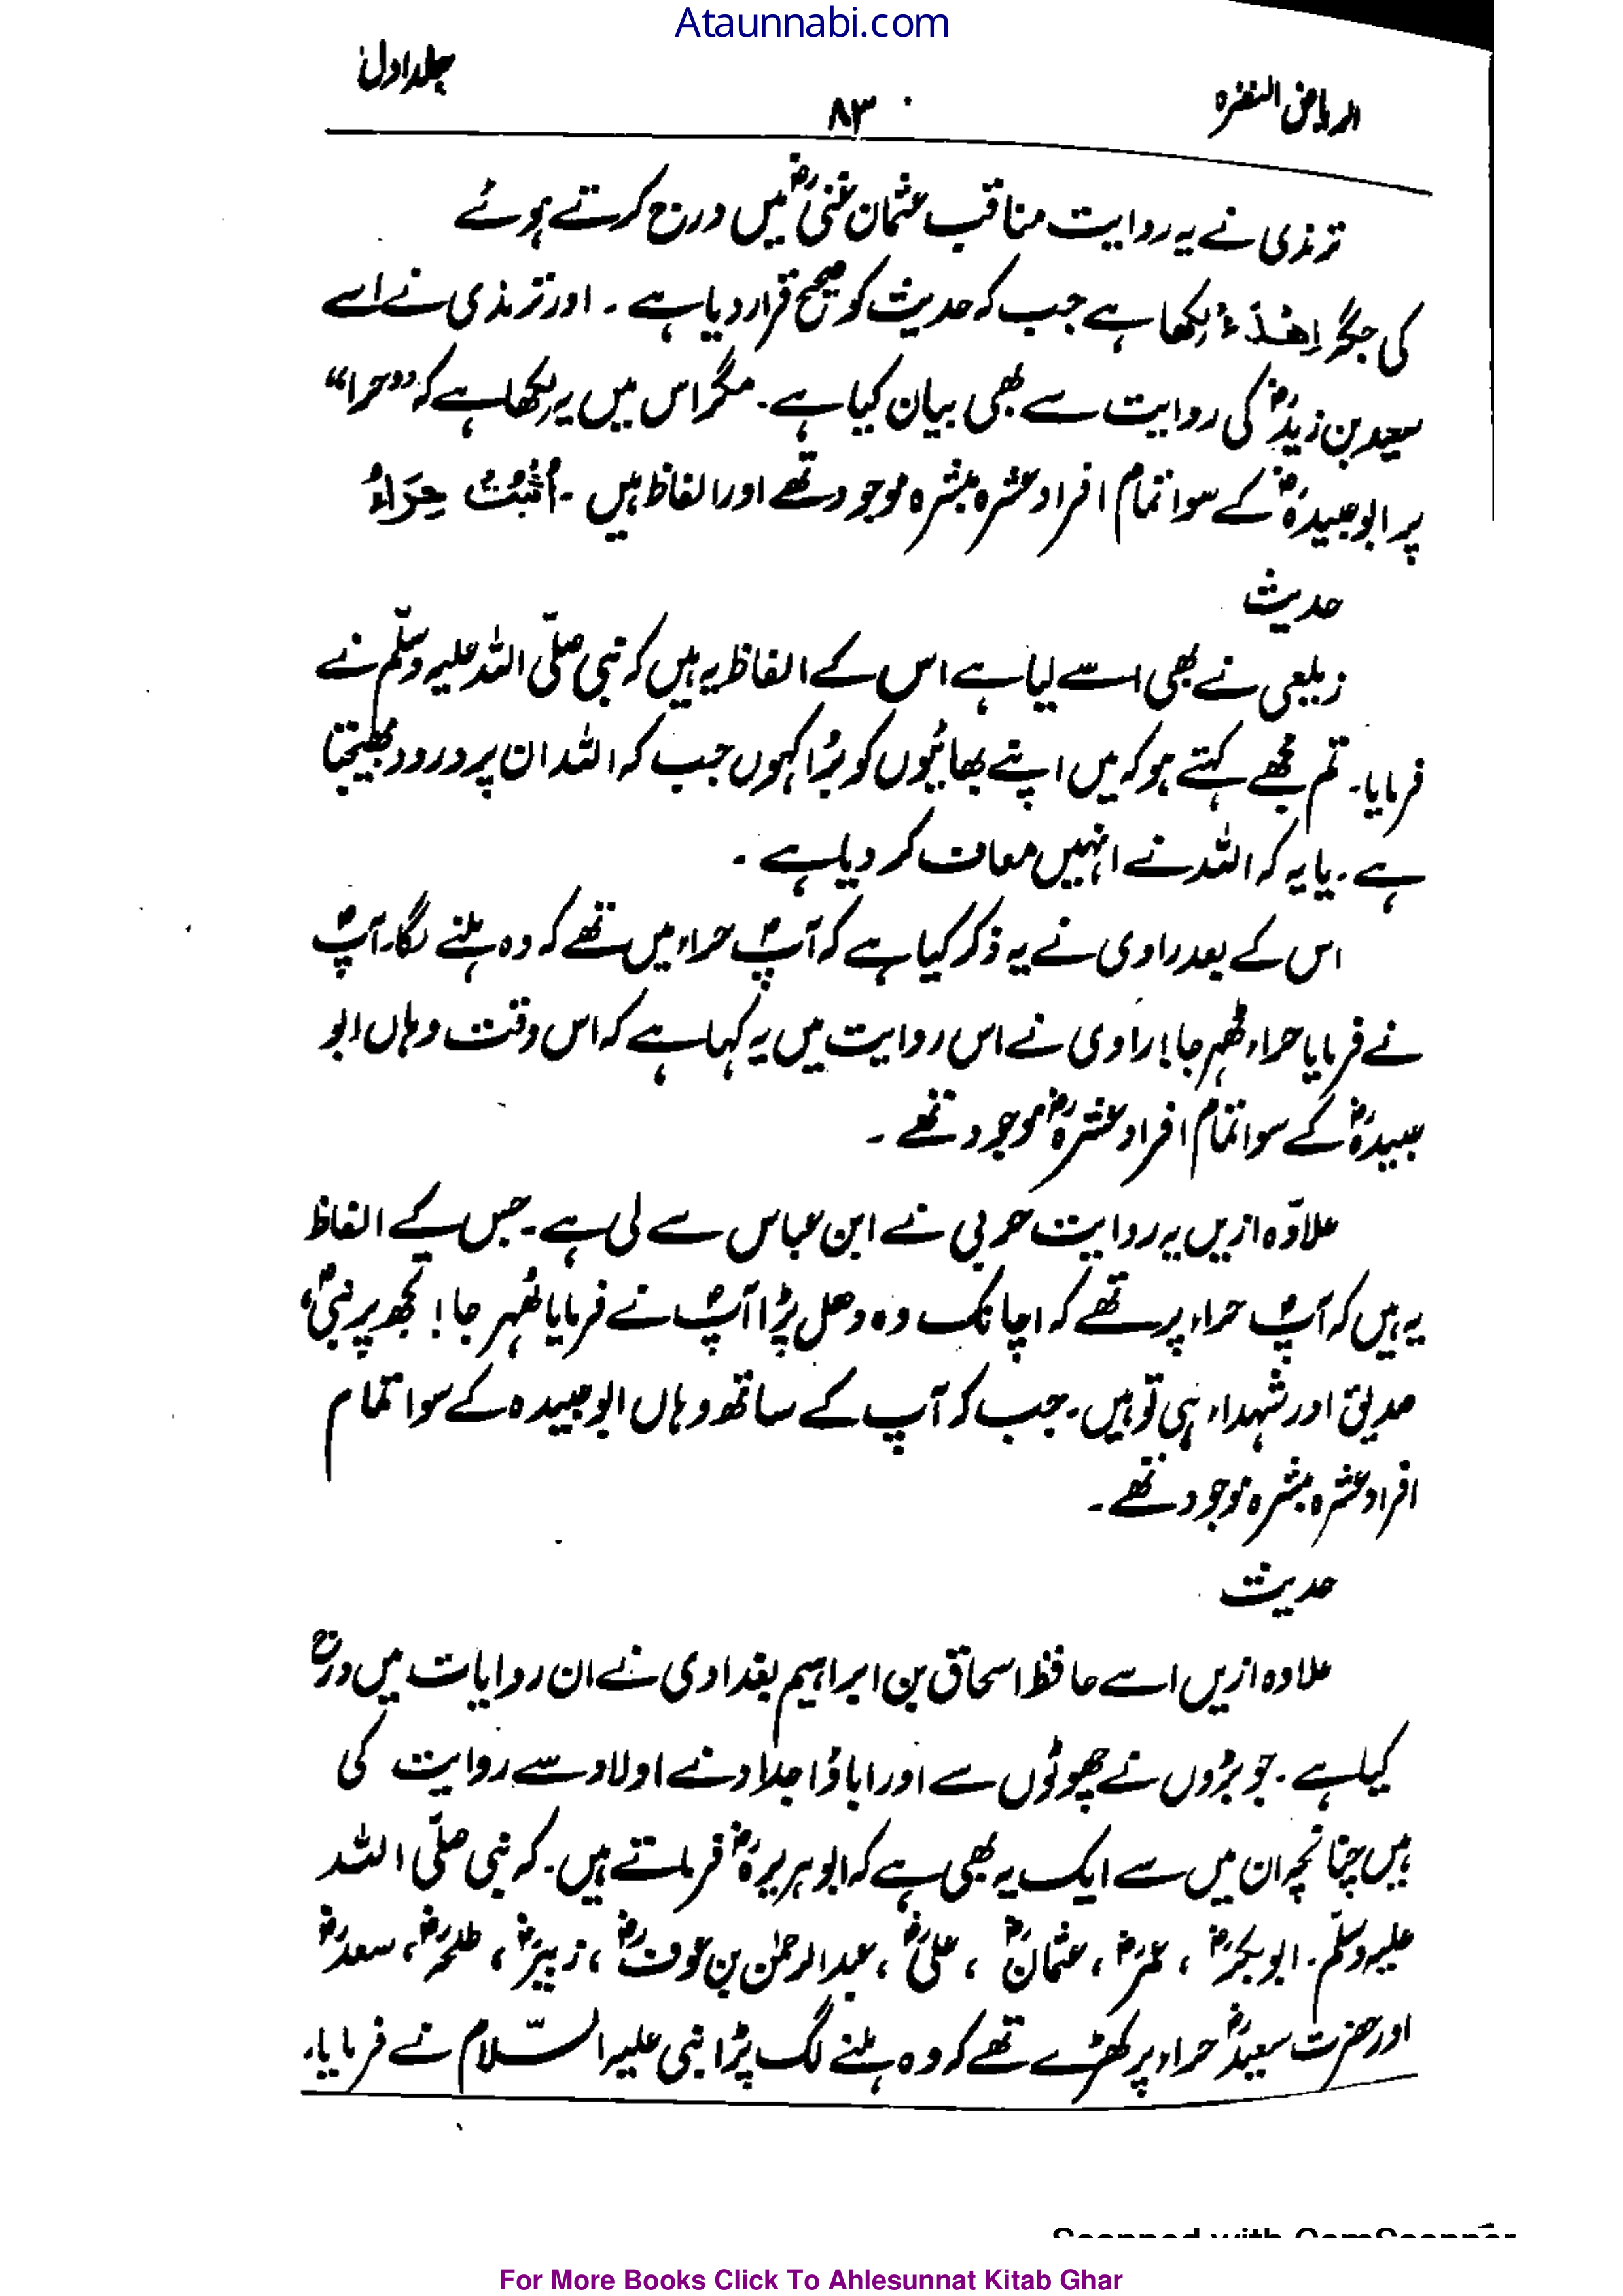 Ataunnabi.com
الریاض النضرہ ۸۳ جلد اول
ترمذی نے یہ روایت مناقب عثمان غنیؓ میں درج کرتے ہوئے
کی جگہ اِھْدَءْ لکھا ہے جب کہ حدیث کو صحیح قرار دیا ہے ۔ اور ترمذی نے اسے
سعید بن زیدؓ کی روایت سے بھی بیان کیا ہے ۔ مگر اس میں یہ لکھا ہے کہ ”حرا“
پر ابو عبیدہؓ کے سوا تمام افراد عشرہ مبشرہ موجود تھے اور الفاظ ہیں ۔ اُثْبُتْ حِرَاءُ
حدیث
زیلعی نے بھی اسے لیا ہے اس کے الفاظ یہ ہیں کہ نبی صلّی اللہ علیہ وسلّم نے
فرمایا ۔ تم مجھے کہتے ہو کہ میں اپنے بھائیوں کو بُرا کہوں جب کہ اللہ ان پر درود بھیجتا
ہے ۔ یا یہ کہ اللہ نے انہیں معاف کر دیا ہے ۔
اس کے بعد راوی نے یہ ذکر کیا ہے کہ آپؐ حراء میں تھے کہ وہ ہلنے لگا۔ آپؐ
نے فرمایا حراء ٹھہر جا! راوی نے اس روایت میں یہ کہا ہے کہ اس وقت وہاں ابو
عبیدہؓ کے سوا تمام افراد عشرہؓ موجود تھے ۔
علاوہ ازیں یہ روایت حربی نے ابن عباس سے لی ہے ۔ جس کے الفاظ
یہ ہیں کہ آپؐ حراء پر تھے کہ اچانک وہ دھل پڑا آپؐ نے فرمایا ٹھہر جا! تجھ پر نبیؐ،
صدیق اور شہداء ہی تو ہیں ۔ جب کہ آپ کے ساتھ وہاں ابو عبیدہ کے سوا تمام
افراد عشرہ مبشرہ موجود تھے ۔
حدیث
علاوہ ازیں اسے حافظ اسحاق بن ابراہیم بغدادی نے ان روایات میں درج
کیا ہے ۔ جو بڑوں نے چھوٹوں سے اور اباؤ اجداد نے اولاد سے روایت کی
ہیں چنانچہ ان میں سے ایک یہ بھی ہے کہ ابو ہریرہؓ فرماتے ہیں ۔ کہ نبی صلّی اللہ
علیہ وسلّم ۔ ابو بکرؓ ، عمرؓ ، عثمانؓ ، علیؓ ، عبدالرحمٰن بن عوفؓ ، زبیرؓ ، طلحہؓ ، سعدؓ
اور حضرت سعیدؓ حراء پر کھڑے تھے کہ وہ ہلنے لگ پڑا نبی علیہ السّلام نے فرمایا۔
Scanned with CamScanner
For More Books Click To Ahlesunnat Kitab Ghar